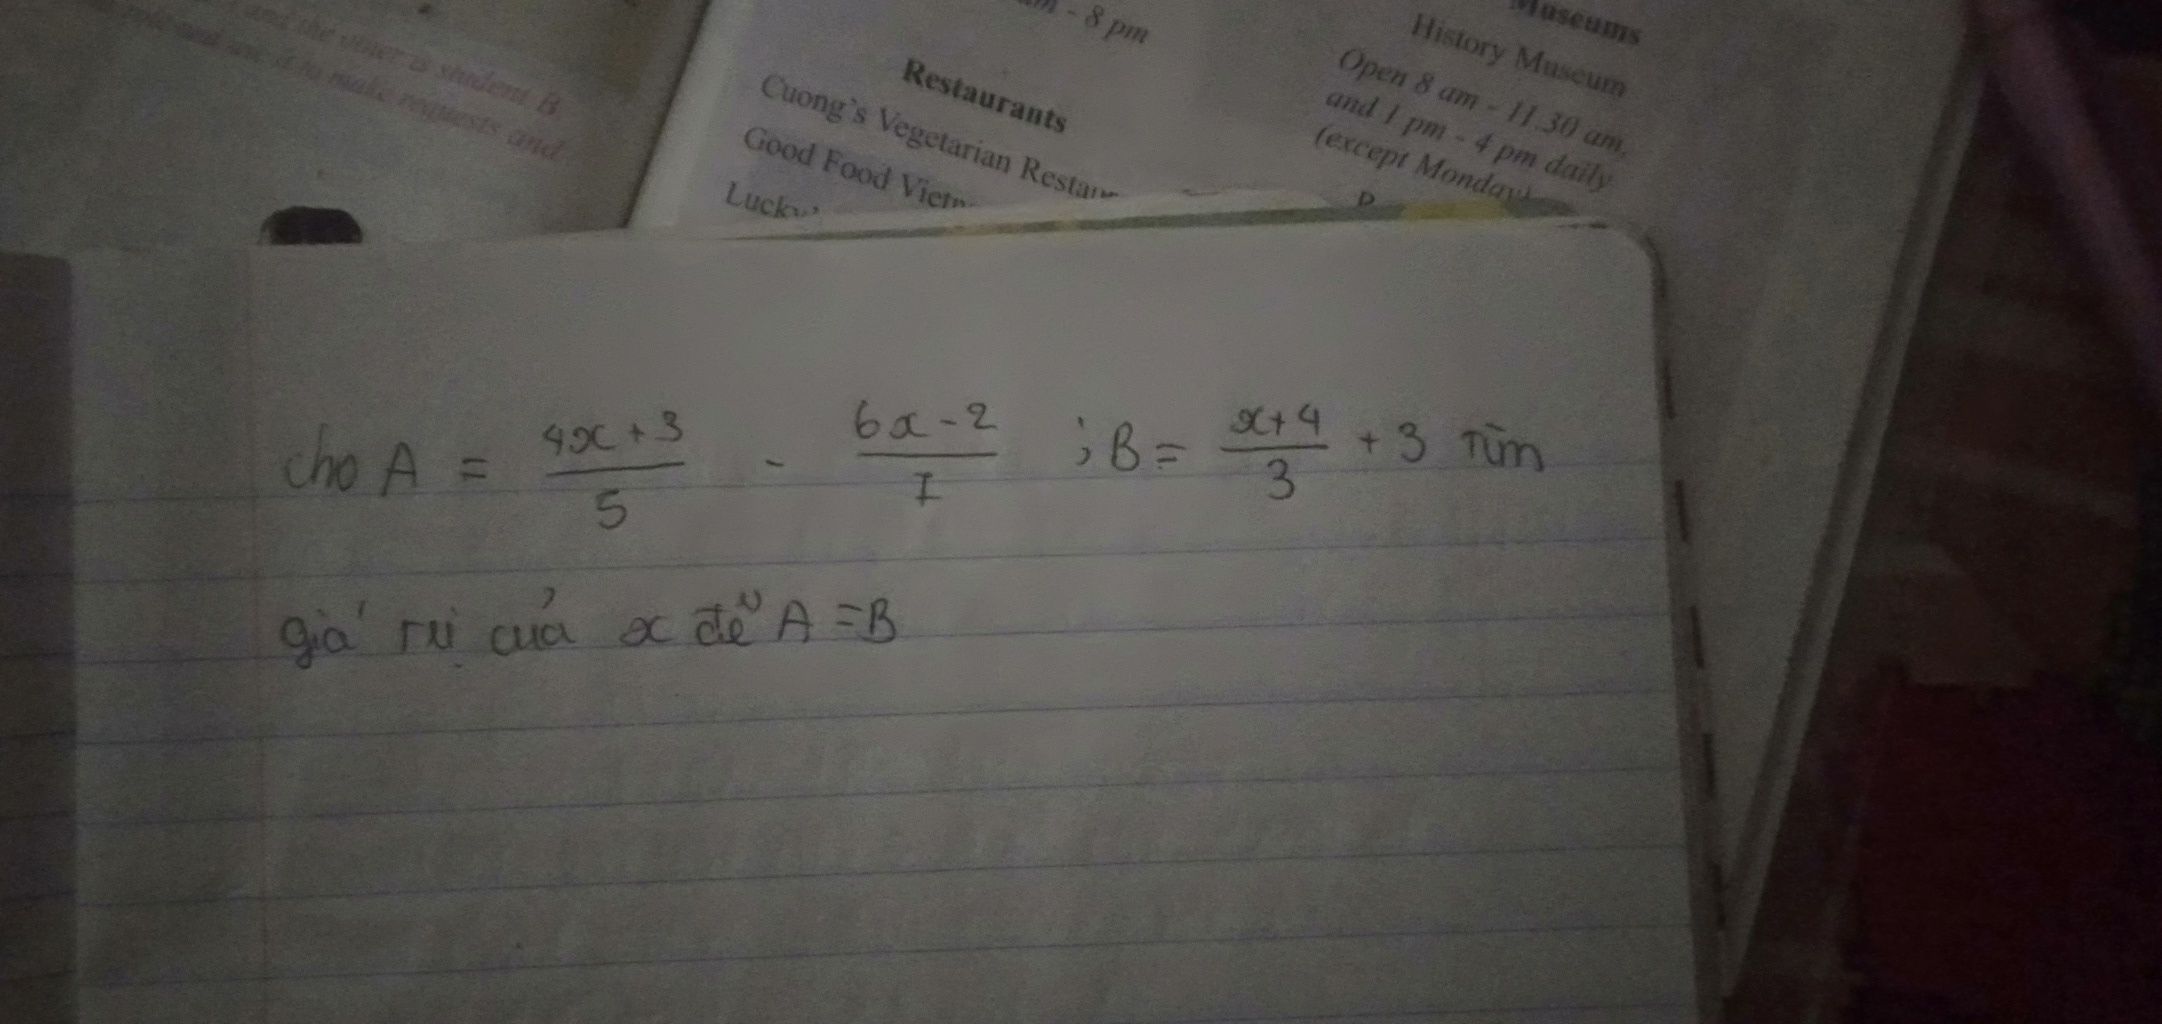 and the other is student B
to make requests and
- 8 pm
Restaurants
Cuong's Vegetarian
Good Food
Museums
History Museum
Open 8 am - 11.30 am,
and 1 pm - 4 pm daily
(except Monday)
cho A = (4x + 3)/5 - (6x - 2)/7 ; B = (x + 4)/3 + 3 Tìm
giá trị của x để A = B